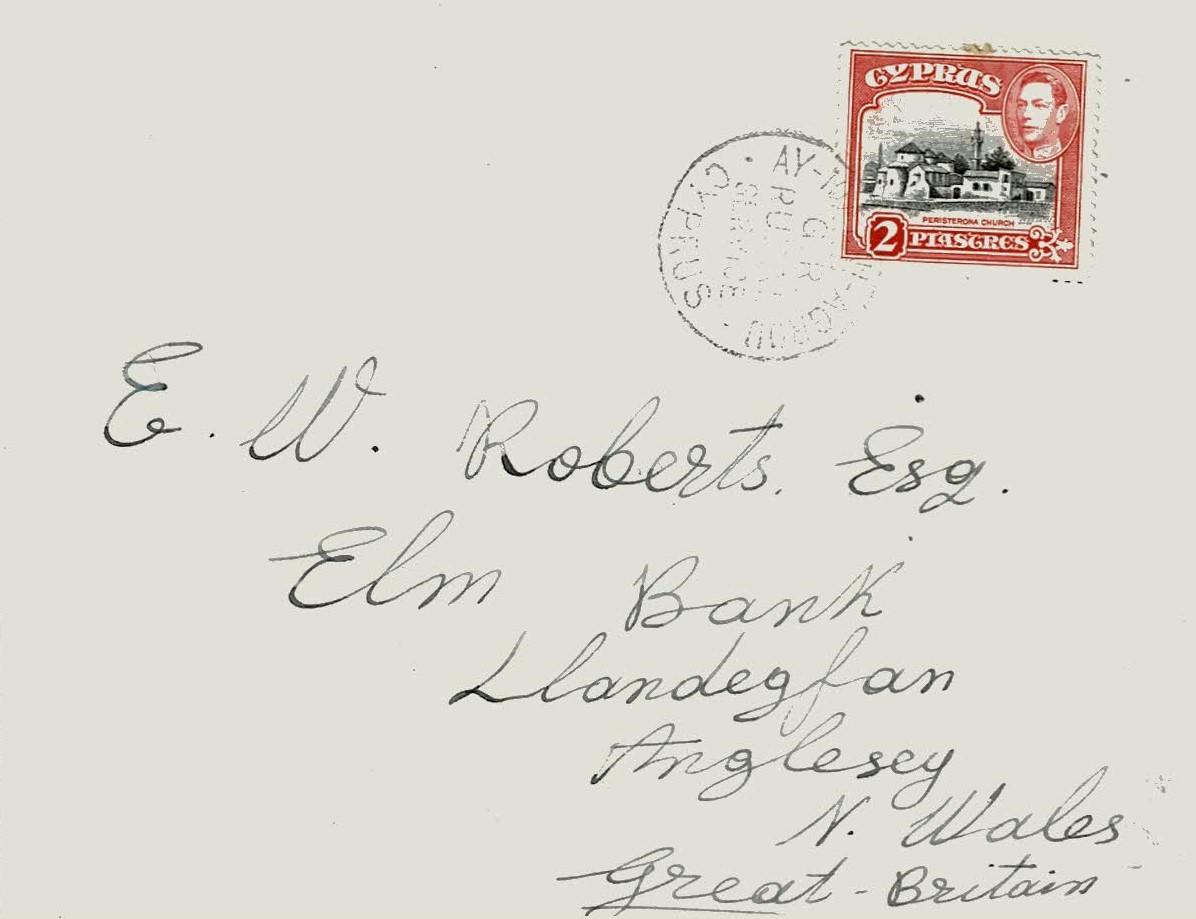 CYPRUS
PERISTERONA CHURCH
2 PIASTRES
G.R.
SERVICE
CYPRUS
E. W. Roberts. Esq.
Elm Bank
Llandegfan
Anglesey
N. Wales
Great-Britain